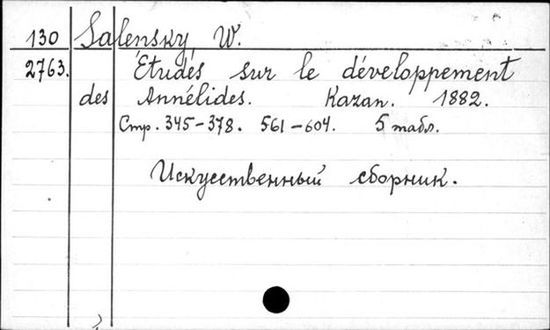 130 Salensky, W.
2763. Études sur le développement
des Annélides. Kazan. 1882.
Стр. 345-378. 561-604. 5 табл.
Искусственный сборник.